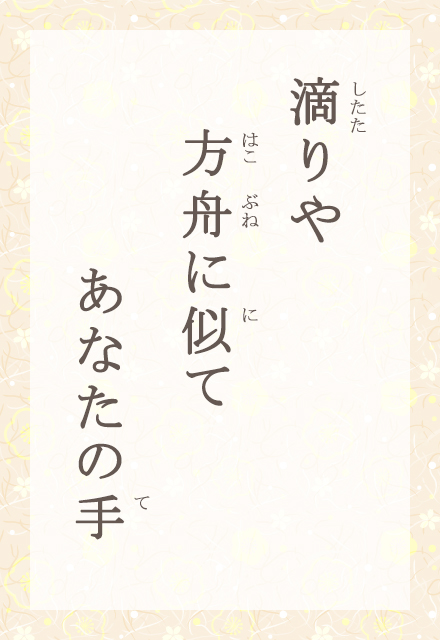 滴りや
したた
方舟に似て
はこ ぶね に
あなたの手
て